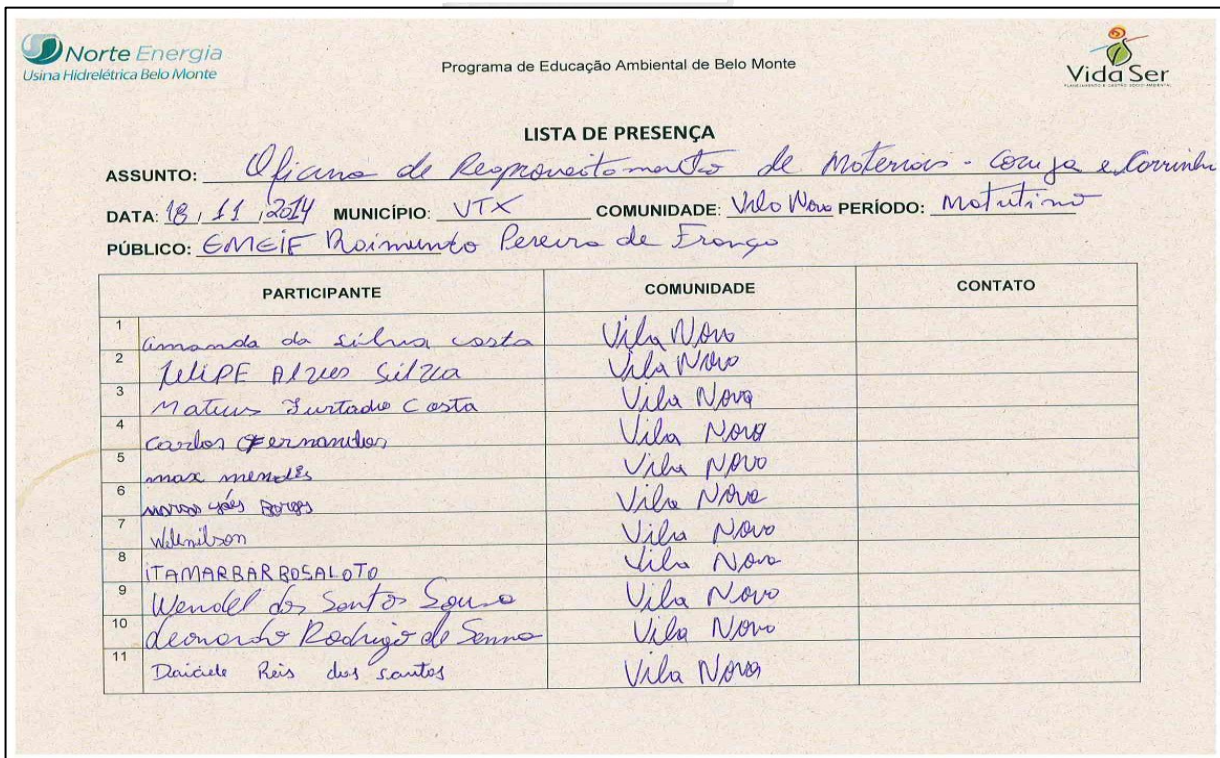 Norte Energia
Usina Hidrelétrica Belo Monte
Programa de Educação Ambiental de Belo Monte
Vida Ser
LISTA DE PRESENÇA
ASSUNTO: Oficina de Reaproveitamento de Materiais - Coruja e Carrinho
DATA: 18 / 11 / 2014 MUNICÍPIO: VTX COMUNIDADE: Vila Nova PERÍODO: Matutino
PÚBLICO: EMEIF Raimundo Pereira de França
PARTICIPANTE COMUNIDADE CONTATO
1 amanda da silva costa Vila Nova
2 FeliPE Alves Silva Vila Nova
3 Mateus Furtado Costa Vila Nova
4 Carlos Fernandes Vila Nova
5 max mendes Vila Nova
6 Borges Vila Nova
7 Welenilson Vila Nova
8 ITAMARBARBOSALOTO Vila Nova
9 Wendel dos Santos Sousa Vila Nova
10 Leonardo Rodrigo de Senna Vila Nova
11 Reis dos santos Vila Nova